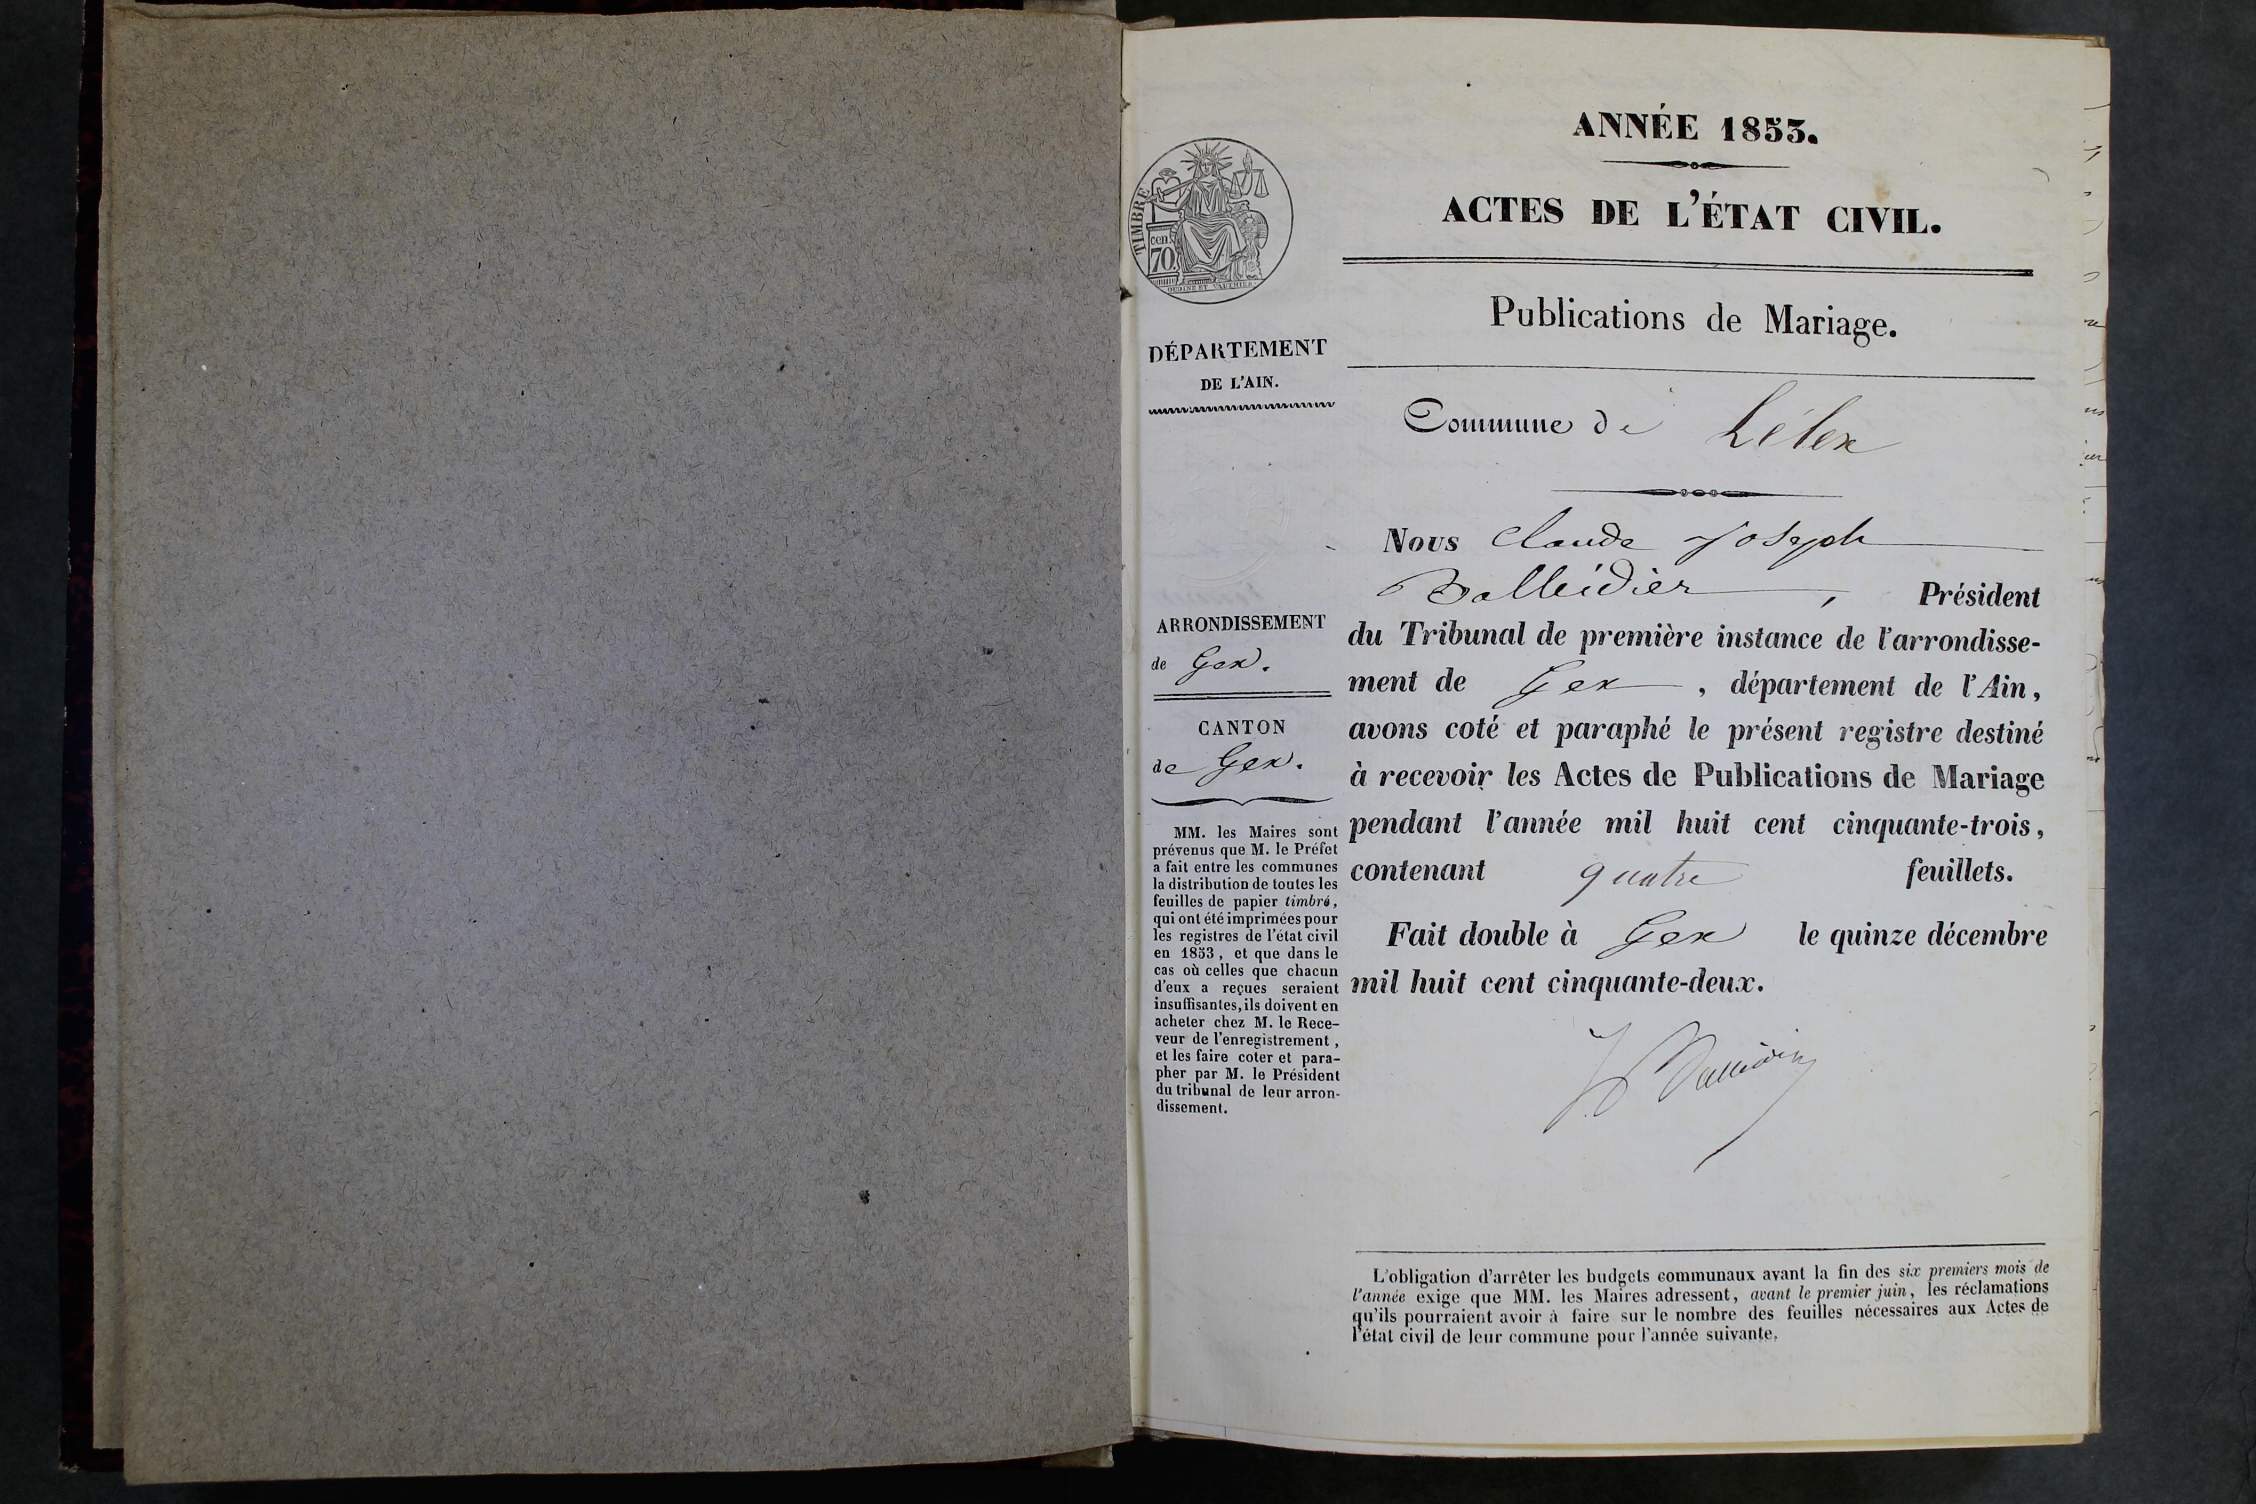 ANNÉE 1853.
ACTES DE L'ÉTAT CIVIL.
Publications de Mariage.
Commune de Lélex
Nous Claude Joseph
Balleidier, Président
du Tribunal de première instance de l'arrondisse-
ment de Gex, département de l'Ain,
avons coté et paraphé le présent registre destiné
à recevoir les Actes de Publications de Mariage
pendant l'année mil huit cent cinquante-trois,
contenant quatre feuillets.
Fait double à Gex le quinze décembre
mil huit cent cinquante-deux.
TIMBRE
cen.
70
OUDINE ET VAUTHIER
DÉPARTEMENT
DE L'AIN.
ARRONDISSEMENT
de Gex.
CANTON
de Gex.
MM. les Maires sont
prévenus que M. le Préfet
a fait entre les communes
la distribution de toutes les
feuilles de papier timbré,
qui ont été imprimées pour
les registres de l'état civil
en 1853, et que dans le
cas où celles que chacun
d'eux a reçues seraient
insuffisantes, ils doivent en
acheter chez M. le Rece-
veur de l'enregistrement,
et les faire coter et para-
pher par M. le Président
du tribunal de leur arron-
dissement.
L'obligation d'arrêter les budgets communaux avant la fin des six premiers mois de
l'année exige que MM. les Maires adressent, avant le premier juin, les réclamations
qu'ils pourraient avoir à faire sur le nombre des feuilles nécessaires aux Actes de
l'état civil de leur commune pour l'année suivante.